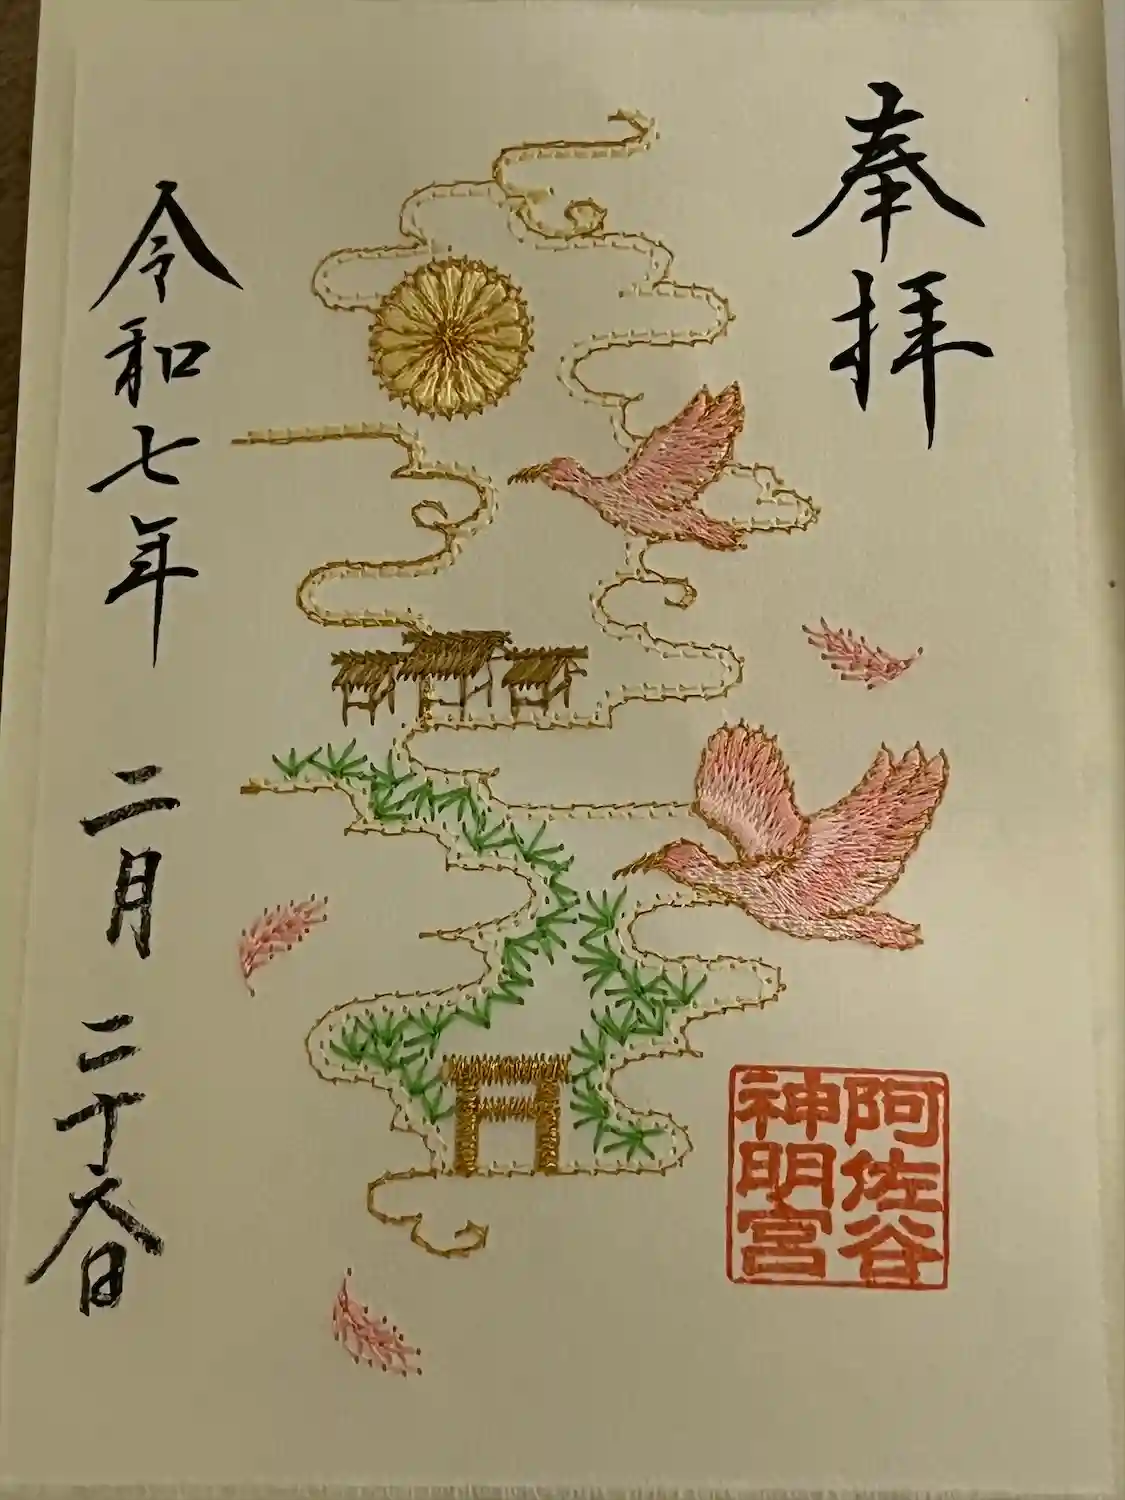 奉拝
阿佐谷
神明宮
令和七年二月二十六日